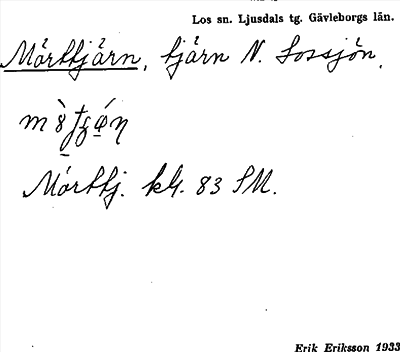 Los sn. Ljusdals tg. Gävleborgs län.
Mörttjärn, tjärn N. Lossjön.
Mörttj. kh. 83 SM.
Erik Eriksson 1933